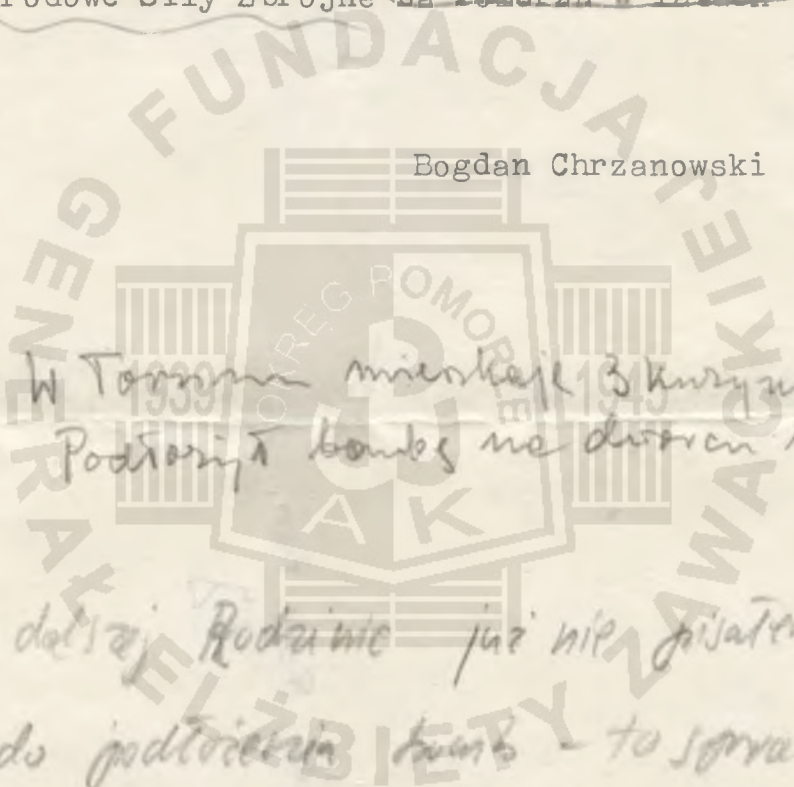 rodowe Siły Zbrojne na Pomorzu w latach
Bogdan Chrzanowski
W Toruniu mieszkaje 3 kuzyn
Podłożył bombę na dworcu
dalszej Rodzinie już nie pisałe
do podłożenia bomb - to spra
FUNDACJA GENERAŁ ELŻBIETY ZAWACKIEJ
OKRĘG POMORZE
1939 1945
AK